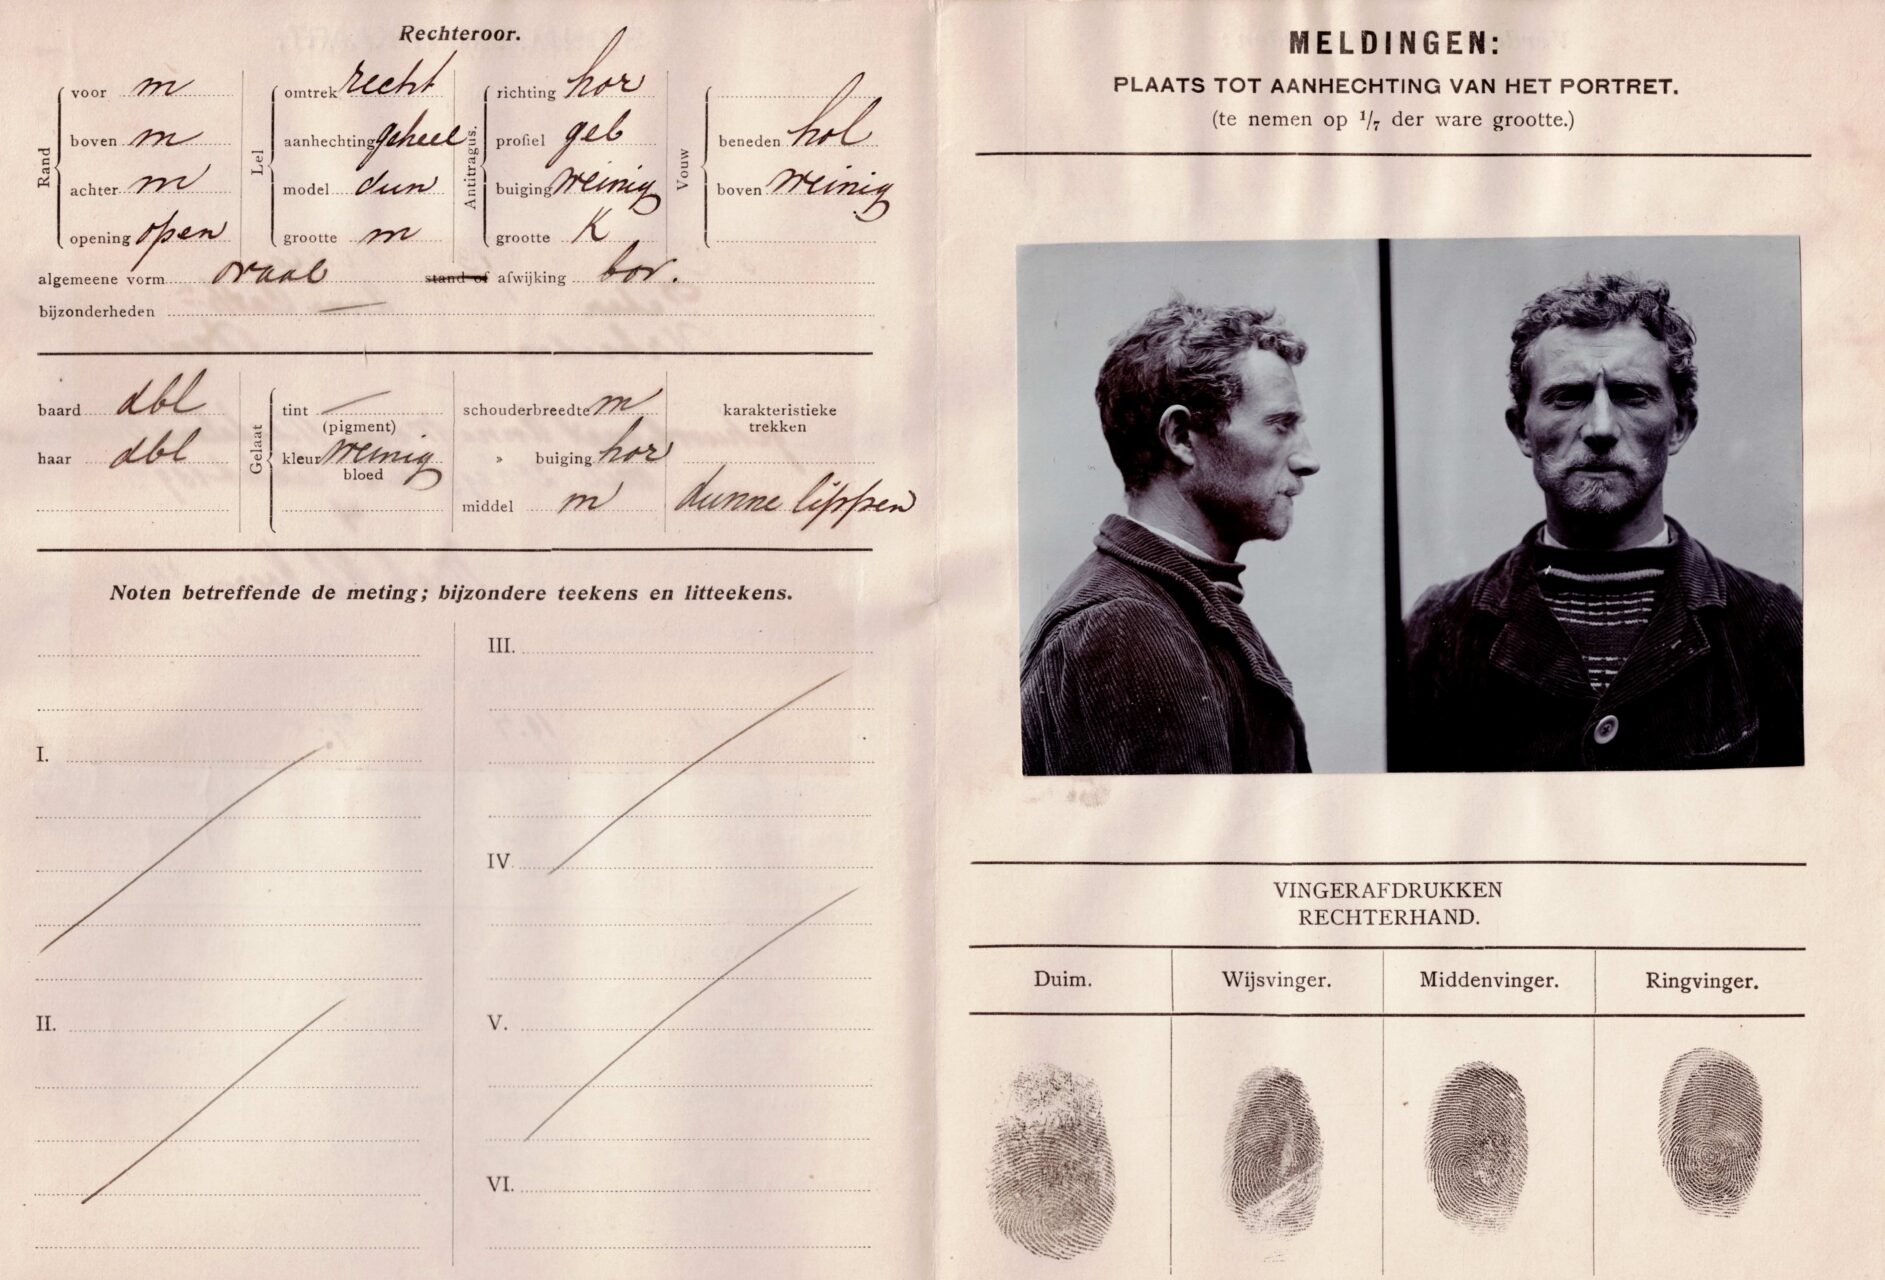 Rechteroor.
Rand
voor m
boven m
achter m
opening open
Lel
omtrek recht
aanhechting geheel
model dun
grootte m
Antitragus.
richting hor
profiel geb
buiging weinig
grootte K
Vouw
beneden hol
boven weinig
algemeene vorm ovaal stand of afwijking bov.
bijzonderheden —
baard dbl
haar dbl
Gelaat
tint —
(pigment)
kleur weinig
bloed
schouderbreedte m
» buiging hor
middel m
karakteristieke
trekken
dunne lippen
Noten betreffende de meting; bijzondere teekens en litteekens.
I.
II.
III.
IV.
V.
VI.
MELDINGEN:
PLAATS TOT AANHECHTING VAN HET PORTRET.
(te nemen op 1/7 der ware grootte.)
VINGERAFDRUKKEN
RECHTERHAND.
Duim. Wijsvinger. Middenvinger. Ringvinger.